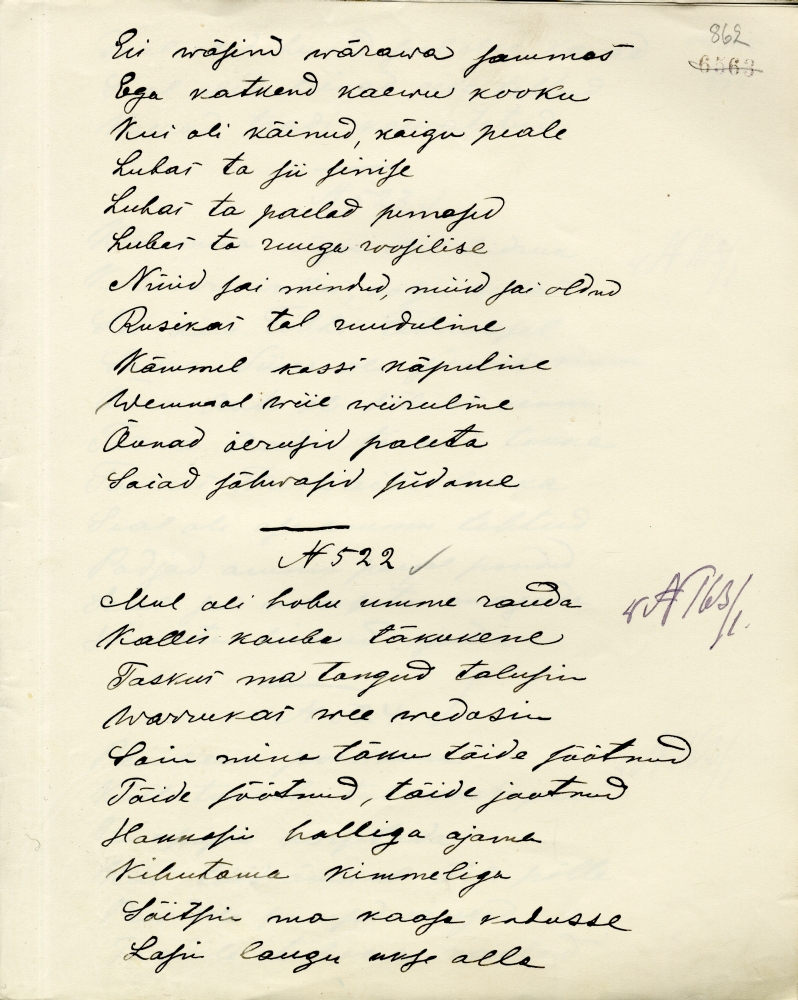 862
6563
Eii wäsind wärawa sammas
Ega katkend kaewu kooku
Kui oli käinud, käigu peale
Lubas ta sii sinise
Lubas ta paelad punased
Lubas ta ruuga roosilise
Nüüd sai mindud, nüüd sai oldud
Rusikas tal ruuduline
Kämmel kassi käpuline
Wemmal wiie wiiruline
Õunad õerusid paleta
Saiad sähwasid südame
N 522 ✓
Mul oli hobu umme rauda
Kallis kauba täkukene
Taskus ma tangud talusin
Warrukas wee wedasin
Sain mina täku täide söötnud
Täide söötnud, täide jootnud
Hakkasin halliga ajama
Kihutama kimmeliga
Sõitsin ma kaasa kodusse
Lasin laugu ukse alla